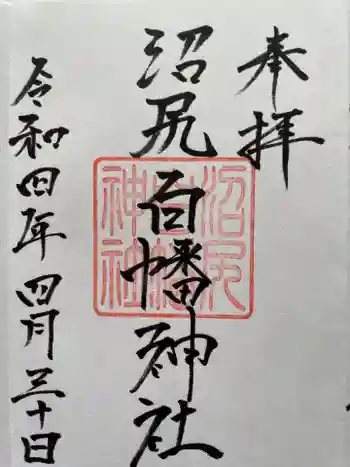 奉拝
沼尻白幡神社
沼尻
白幡
神社
令和四年四月三十日